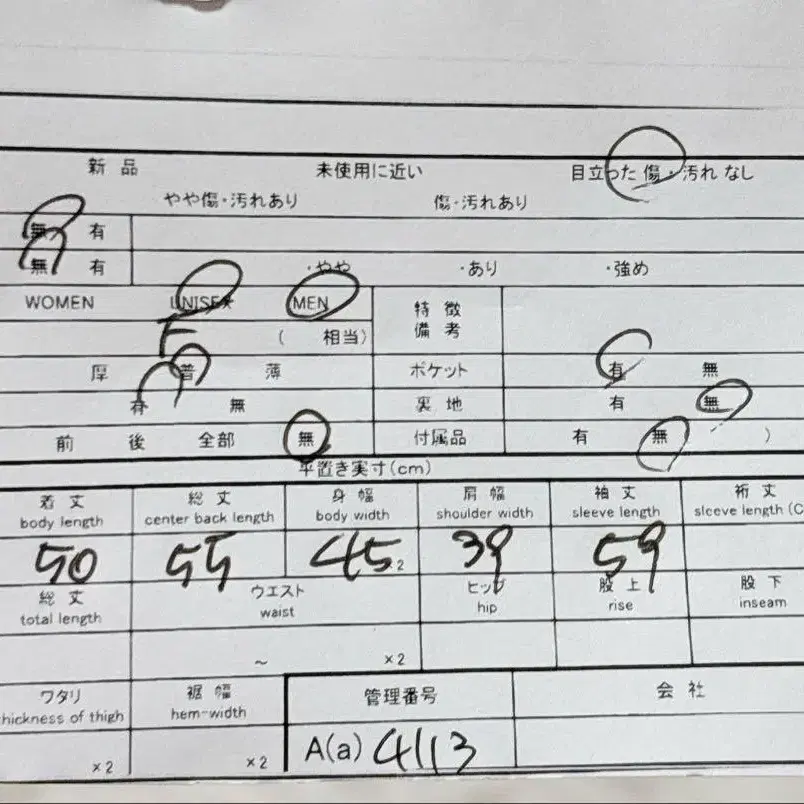 新品 未使用に近い 目立った傷・汚れなし
やや傷・汚れあり 傷・汚れあり
無 有
無 有 ・やや ・あり ・強め
WOMEN UNISEX MEN 特徴
備考
F ( 相当)
厚 普 薄 ポケット 有 無
有 無 裏地 有 無
前 後 全部 無 付属品 有 無 )
平置き実寸(cm)
着丈 総丈 身幅 肩幅 袖丈 裄丈
body length center back length body width shoulder width sleeve length sleeve length (C
50 55 45 2 39 59
総丈 ウエスト ヒップ 股上 股下
total length waist hip rise inseam
~ ×2
ワタリ 裾幅 管理番号 会社
hickness of thigh hem-width
×2 ×2 A(a) 4113